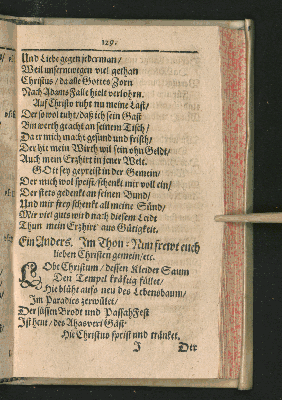 129.
Und Liebe gegen jederman/
Weil unsernwegen viel gethan
Christus/ da alle Gottes Zorn
Nach Adams Falle hielt verlohrn.
Auff Christo ruht nu meine Last/
Der so wol ruht/ daß ich sein Gast
Bin werth geacht an seinem Tisch/
Da er mich macht gesund und frisch/
Der hie mein Wirth wil sein ohn Geld/
Auch mein Erzhirt in jener Welt.
GOtt sey gepreist in der Gemein/
Der mich wol speist/ schenkt mir voll ein/
Der stets gedenkt an seinen Bund/
Und mir frey schenkt all meine Sünd/
Mir viel guts wird nach diesem Leidt
Thun mein Erzhirt aus Gütigkeit.
Ein Anders. Im Thon: Nun frewt euch
lieben Christen gemein/ etc.
LObt Christum/ dessen Kleider Saum
Den Tempel kräftig füllet/
Hie blüht aufs neu des Lebensbaum/
Im Paradies
Der süssen Brodt und PassahFest
Ist heut/ des Ahasveri Gäst
Hie Christus speist und tränket.
J Der